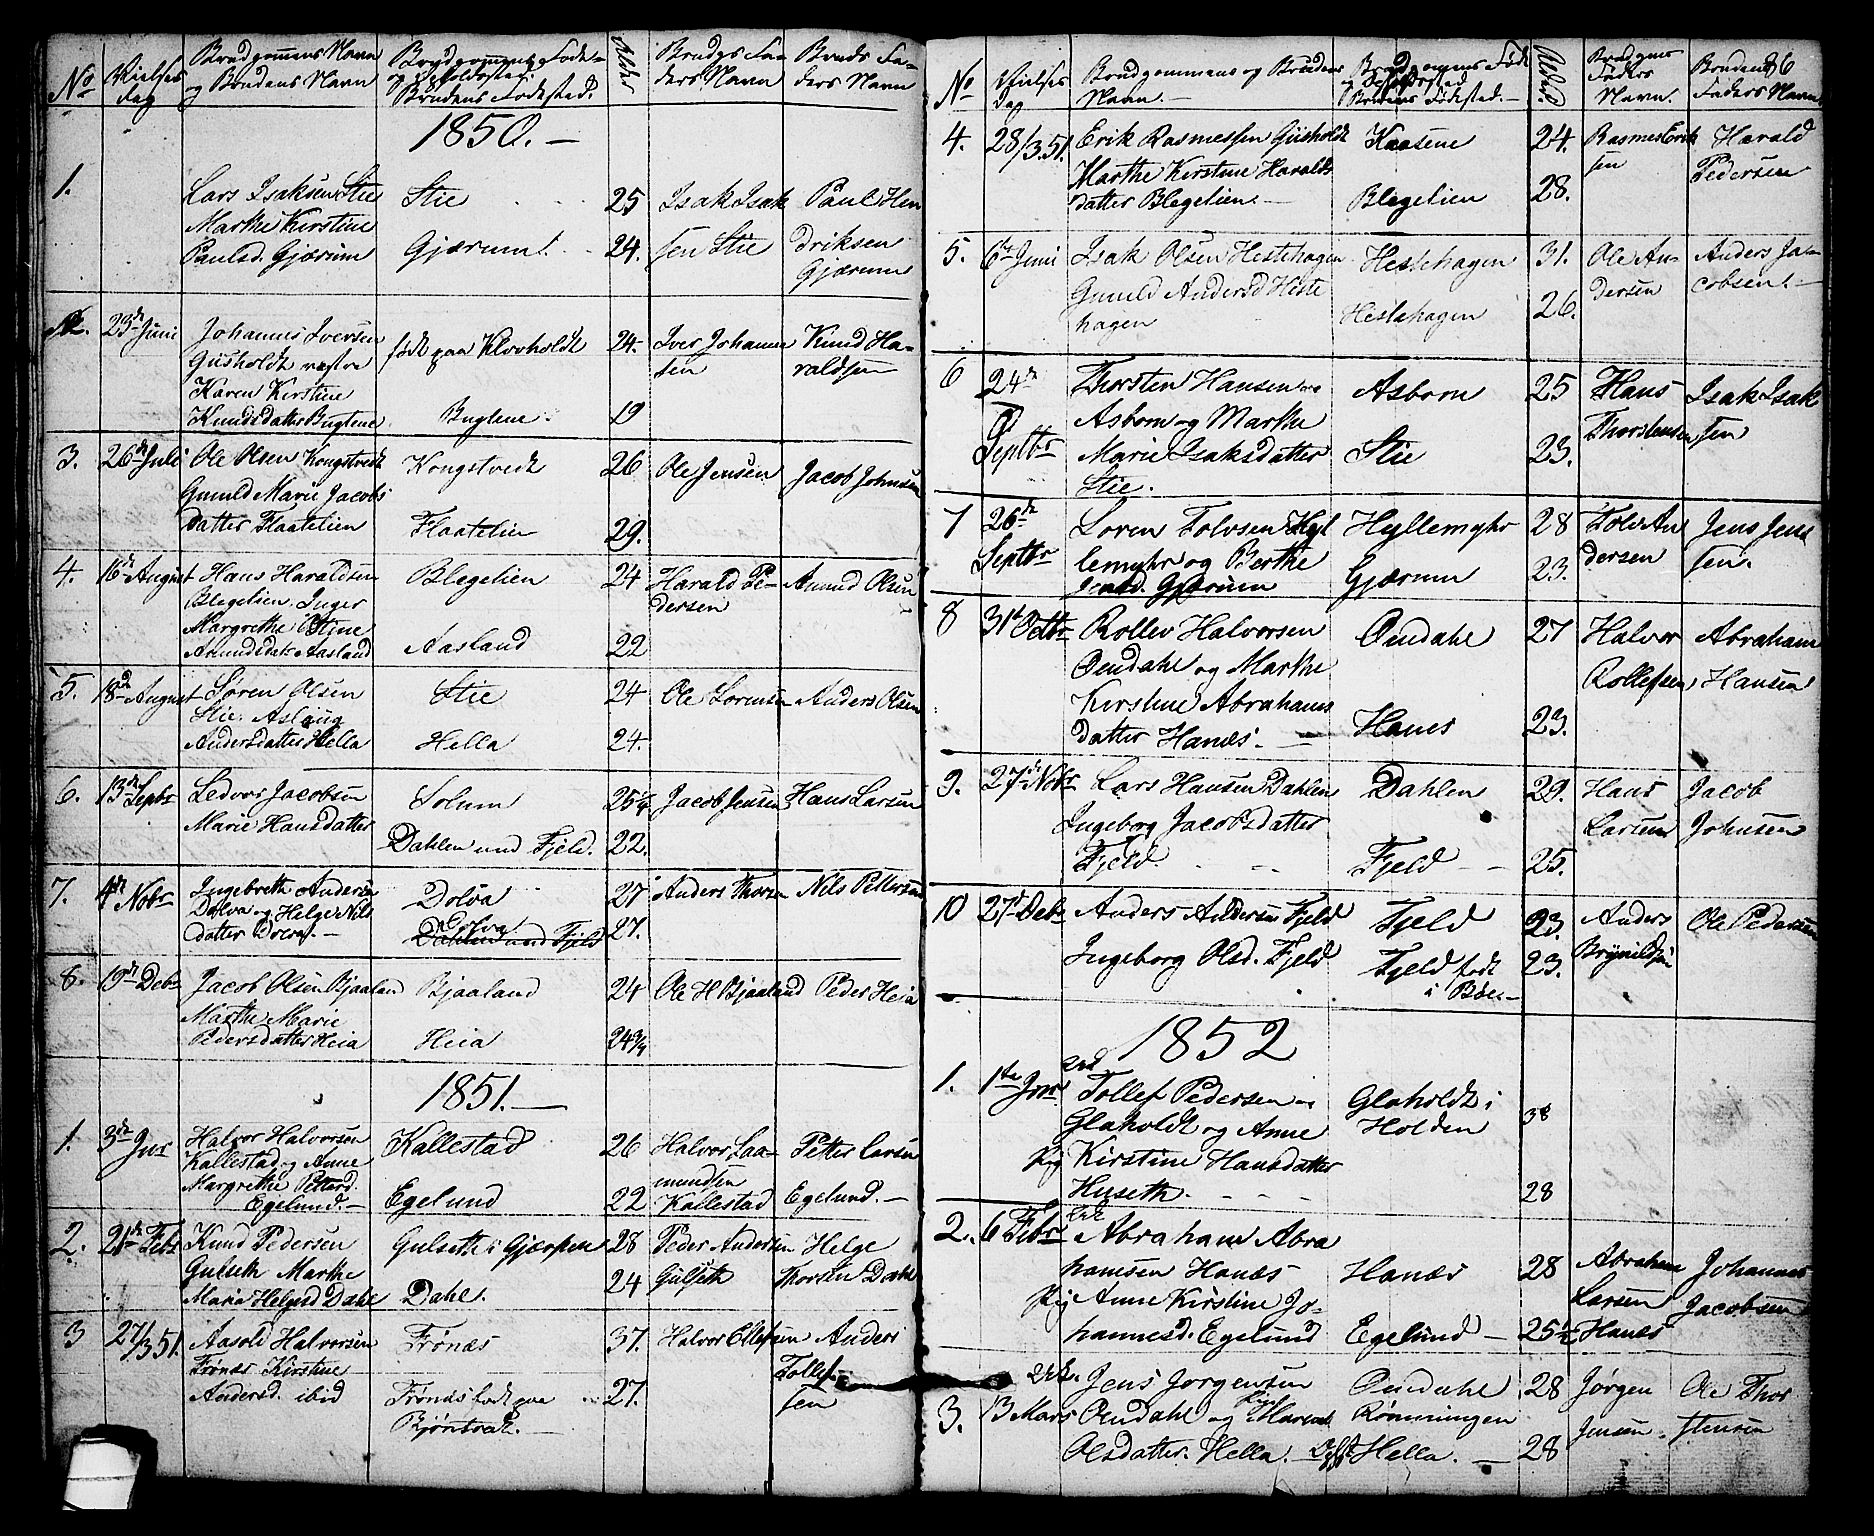 No
Vielses
dag
Brudgommens Navn
og Brudens Navn
Brudgommens Føde-
og Opholdssted
Brudens Fødested.
Alder
Brudgs Fa-
ders Navn
Bruds Fa-
ders Navn
1850.-
1.
Lars Isaksen Stie
Marthe Kirstine
Paulsd. Gjærum
Stie
Gjærum
25
24.
Isak Isak
sen Stie
Paul Hen
driksen
Gjærum
2.
23de Juni
Johannes Iversen
Giisholdt vestre
Karen Kirstine
Knudsdatter Bugtene
født paa Klovholdt
Bugtene
24.
19
Iver Johanne
sen
Knud Ha-
raldsen
3.
26de Juli
Ole Olsen Kongstvedt
Gunild Marie Jacobs
datter Flaatelien
Kongstvedt
Flaatelien
26
29.
Ole Jensen
Jacob Johnsen
4.
16de August
Hans Haraldsen
Blegelien. Inger
Margrethe Stine
Amundsdatr Aasland
Blegelien
Aasland
24
22
Harald Pe-
dersen
Amund Olsen
5.
18de August
Søren Olsen
Stie. Aslaug
Andersdatter Hella
Stie
Hella
24
24.
Ole Sørensen
Anders Olsen
6.
13de Septbr
Ledvor Jacobsen
Marie Hansdatter
Solum
Dahlen und Fjeld.
25¼
22.
Jacob Jensen
Hans Larsen
7.
4de Nobr
Ingebreth Andersen
Dolva og Helge Nils
datter Dolva. -
Dolva
Dolva
Dahlen und Fjeld
27
27.
Anders Thorsen
Nils Pettersen
8.
19de Debr
Jacob Olsen Bjaaland
Marthe Marie
Pedersdatter Heia
Bjaaland
Heia
24
24¾
Ole H Bjaaland
Peder Heia
1851.-
1.
3de Jnr
Halvor Halvorsen
Kallestad og Anne
Margrethe Petersd.
Egelund. -
Kallestad
Egelund
26
22
Halvor Laa-
mundsen
Kallestad
Petter Larsen
Egelund. -
2.
21de Febr
Knud Pedersen
Gulseth Marthe
Maria Helgesd Dahl
Gulseth i Gjerpen
Dahl.
28
24
Peder Andersen
Gulseth
Helge
Thorsen Dahl
3
27/3 51.
Aasold Halvorsen
Frønæs Kirstine
Andersd. ibid
Frønæs
Frønæs født paa
Bjøntvedt. -
37.
27.
Halvor Ellefsen
Anders
Tollef-
sen
86
No
Vielses
dag
Brudgommens og Brudens
Navn. -
Brudgommens Føde
Opholdssted
Brudens Fødested. -
Alder
Brudgoms
Faders
Navn.
Brudens
Faders Navn
4.
28/3.51.
Erik Rasmessen Giisholdt
Marthe Kirstine Haralds
datter Blegelien. -
Kaasene
Blegelien
24.
28.
Rasmes Erik
sen
Harald
Pedersen
5.
6te Juni
Isak Olsen Hestehagen
Gunild Andersd Heste
hagen
Hestehagen
Hestehagen
31.
26.
Ole An-
dersen
Anders Ja-
cobsen. -
6
24de
Septbr
Thorsten Hansen
Asborn og Marthe
Marie Isaksdatter
Stie.
Asborn
Stie
25
23.
Hans
Thorstensen
Isak Isak
sen
7
26de
Septbr
Soren Tolvsen Hyl
lemyhr og Berthe
Jensd. Gjærum
Hyllemyhr
Gjærum
28
23.
Tolv An
dersen
Jens Jens
sen.
8
31te Octbr
Rollev Halvorsen
Omdahl og Marthe
Kirstine Abrahams
datter Hanæs. -
Omdahl
Hanes
27
23.
Halvor
Rollefsen
Abraham
Hansen
9.
27de Nobr
Lars Hansen Dahlen
Ingeborg Jacobsdatter
Fjeld.
Dahlen
Fjeld -
29.
25.
Hans
Larsen
Jacob
Johnsen
10
27de Debr
Anders Andersen Fjeld
Ingeborg Olsd. Fjeld
Fjeld
Fjeld født
i Bøe. -
23.
23.
Anders
Brynildsen
Ole Pedersen
1852
1.
1te Jnr
Tollef Pedersen
Glaholdt og Anne
Pig Kirstine Hansdatter
Huseth.
Glaholdt i
Holden
38
28
2.
6 Febr
Abraham Abra
hamsen Hanæs
Pig Anne Kirstine Jo-
hannesd. Egelund
Hanæs
Egelund -
28
25½
Abraham
Larsen
Hanæs
Johannes
Jacobsen
3.
13 Mars
Jens Jørgensen
Omdahl og Pige Maren
Olsdatter. Hella.
Omdahl
Rønningen
Hella. -
28
28
Jørgen
Jensen
Ole Thor
stensen